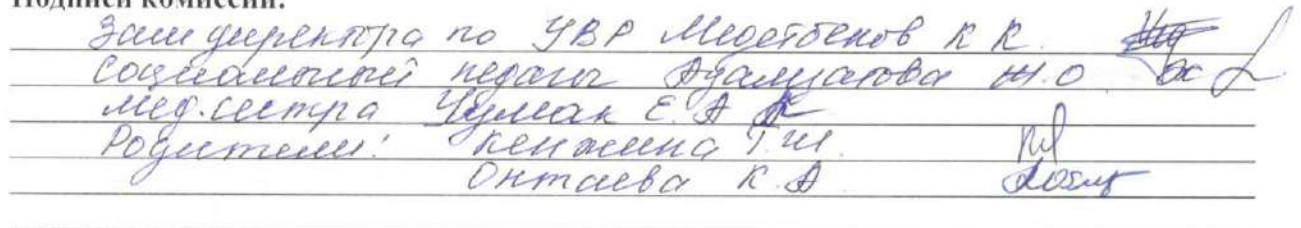 Подписи комиссии:
Зам директора по УВР Медетбеков К К.
Социальный педагог Ж.О
Мед.сестра Чумак Е.А
Родители: Кенжина Г.Ш.
Онтаева К.А